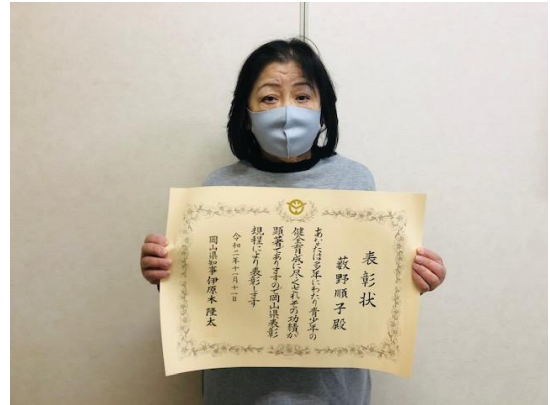 表彰状
薮野順子殿
あなたは多年にわたり青少年の
健全育成に尽くされその功績が
顕著でありますので岡山県表彰
規程により表彰します
令和二年十一月十一日
岡山県知事 伊原木隆太